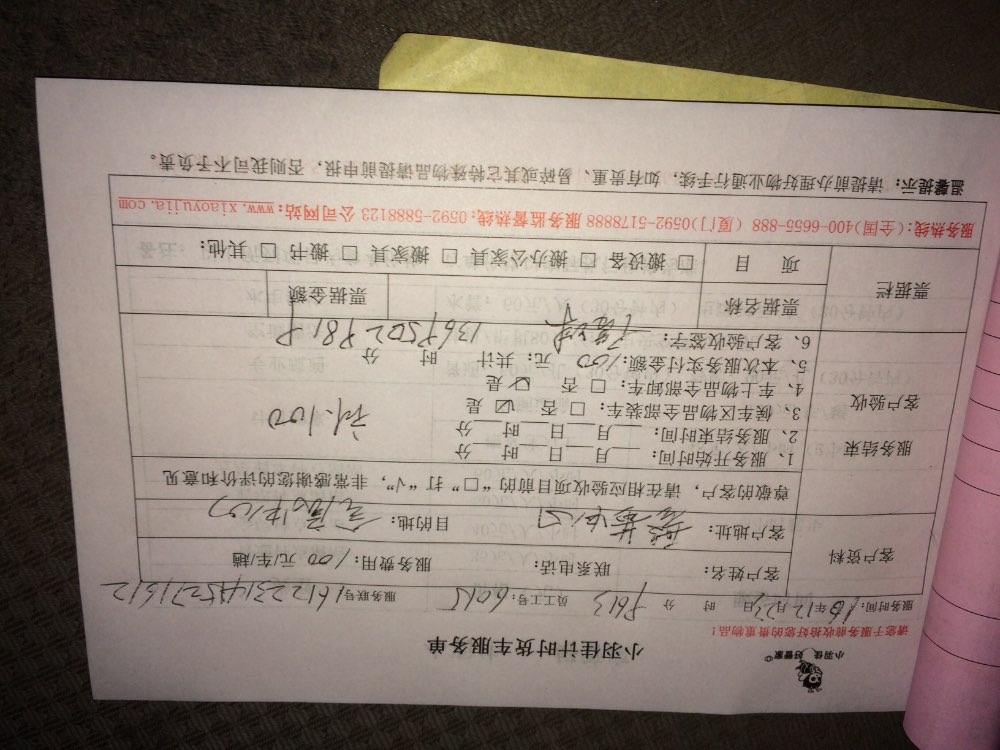 小羽佳 好管家
小羽佳计时货车服务单
请您于服务前收拾好您的贵重物品!
服务时间: 16年12月23日 时 分 P613 员工工号: 6015 服务联号 161223145271612
客户资料
客户姓名: 联系电话: 服务费用: 100 元/车/趟
客户地址: 目的地:
尊敬的客户, 请在相应验收项目前的“□”打“√”, 非常感谢您的评价和意见
服务结束
客户验收
1、服务开始时间: 月 日 时 分
2、服务结束时间: 月 日 时 分
3、候车区物品全部装车: □ 否 ☑ 是
4、车上物品全部卸车: □ 否 ☑ 是
5、本次服务支付金额: 100 元; 共计 时 分
6、客户验收签字:
票据栏
票据名称 票据金额
项 目 □ 搬设备 □ 搬办公家具 □ 搬家具 □ 搬书 □ 其他:
服务热线: (全国)400-6655-888 (厦门)0592-5178888 服务监督热线: 0592-5888123 公司网站: www.xiaoyujia.com
温馨提示: 请提前办理好物业通行手续, 如有贵重、易碎或其它特殊物品请提前申报, 否则我司不予负责。